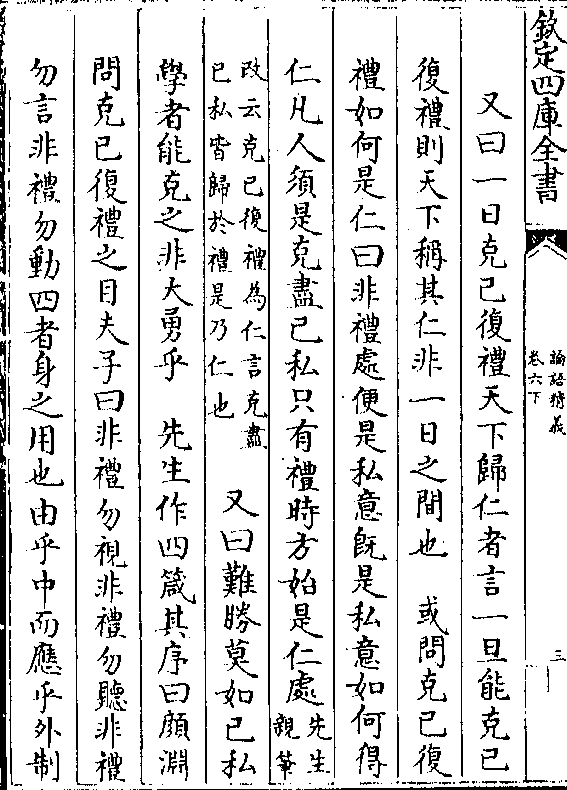 欽定四庫全書
論語精義
卷六下
三
又曰一日克己復禮天下歸仁者言一旦能克己
復禮則天下稱其仁非一日之間也　或問克己復
禮如何是仁曰非禮處便是私意旣是私意如何得
仁凡人須是克盡己私只有禮時方始是仁處先生
親筆
改云克己復禮為仁言克盡
己私皆歸於禮是乃仁也
又曰難勝莫如己私
學者能克之非大勇乎　先生作四箴其序曰顔淵
問克己復禮之目夫子曰非禮勿視非禮勿聽非禮
勿言非禮勿動四者身之用也由乎中而應乎外制